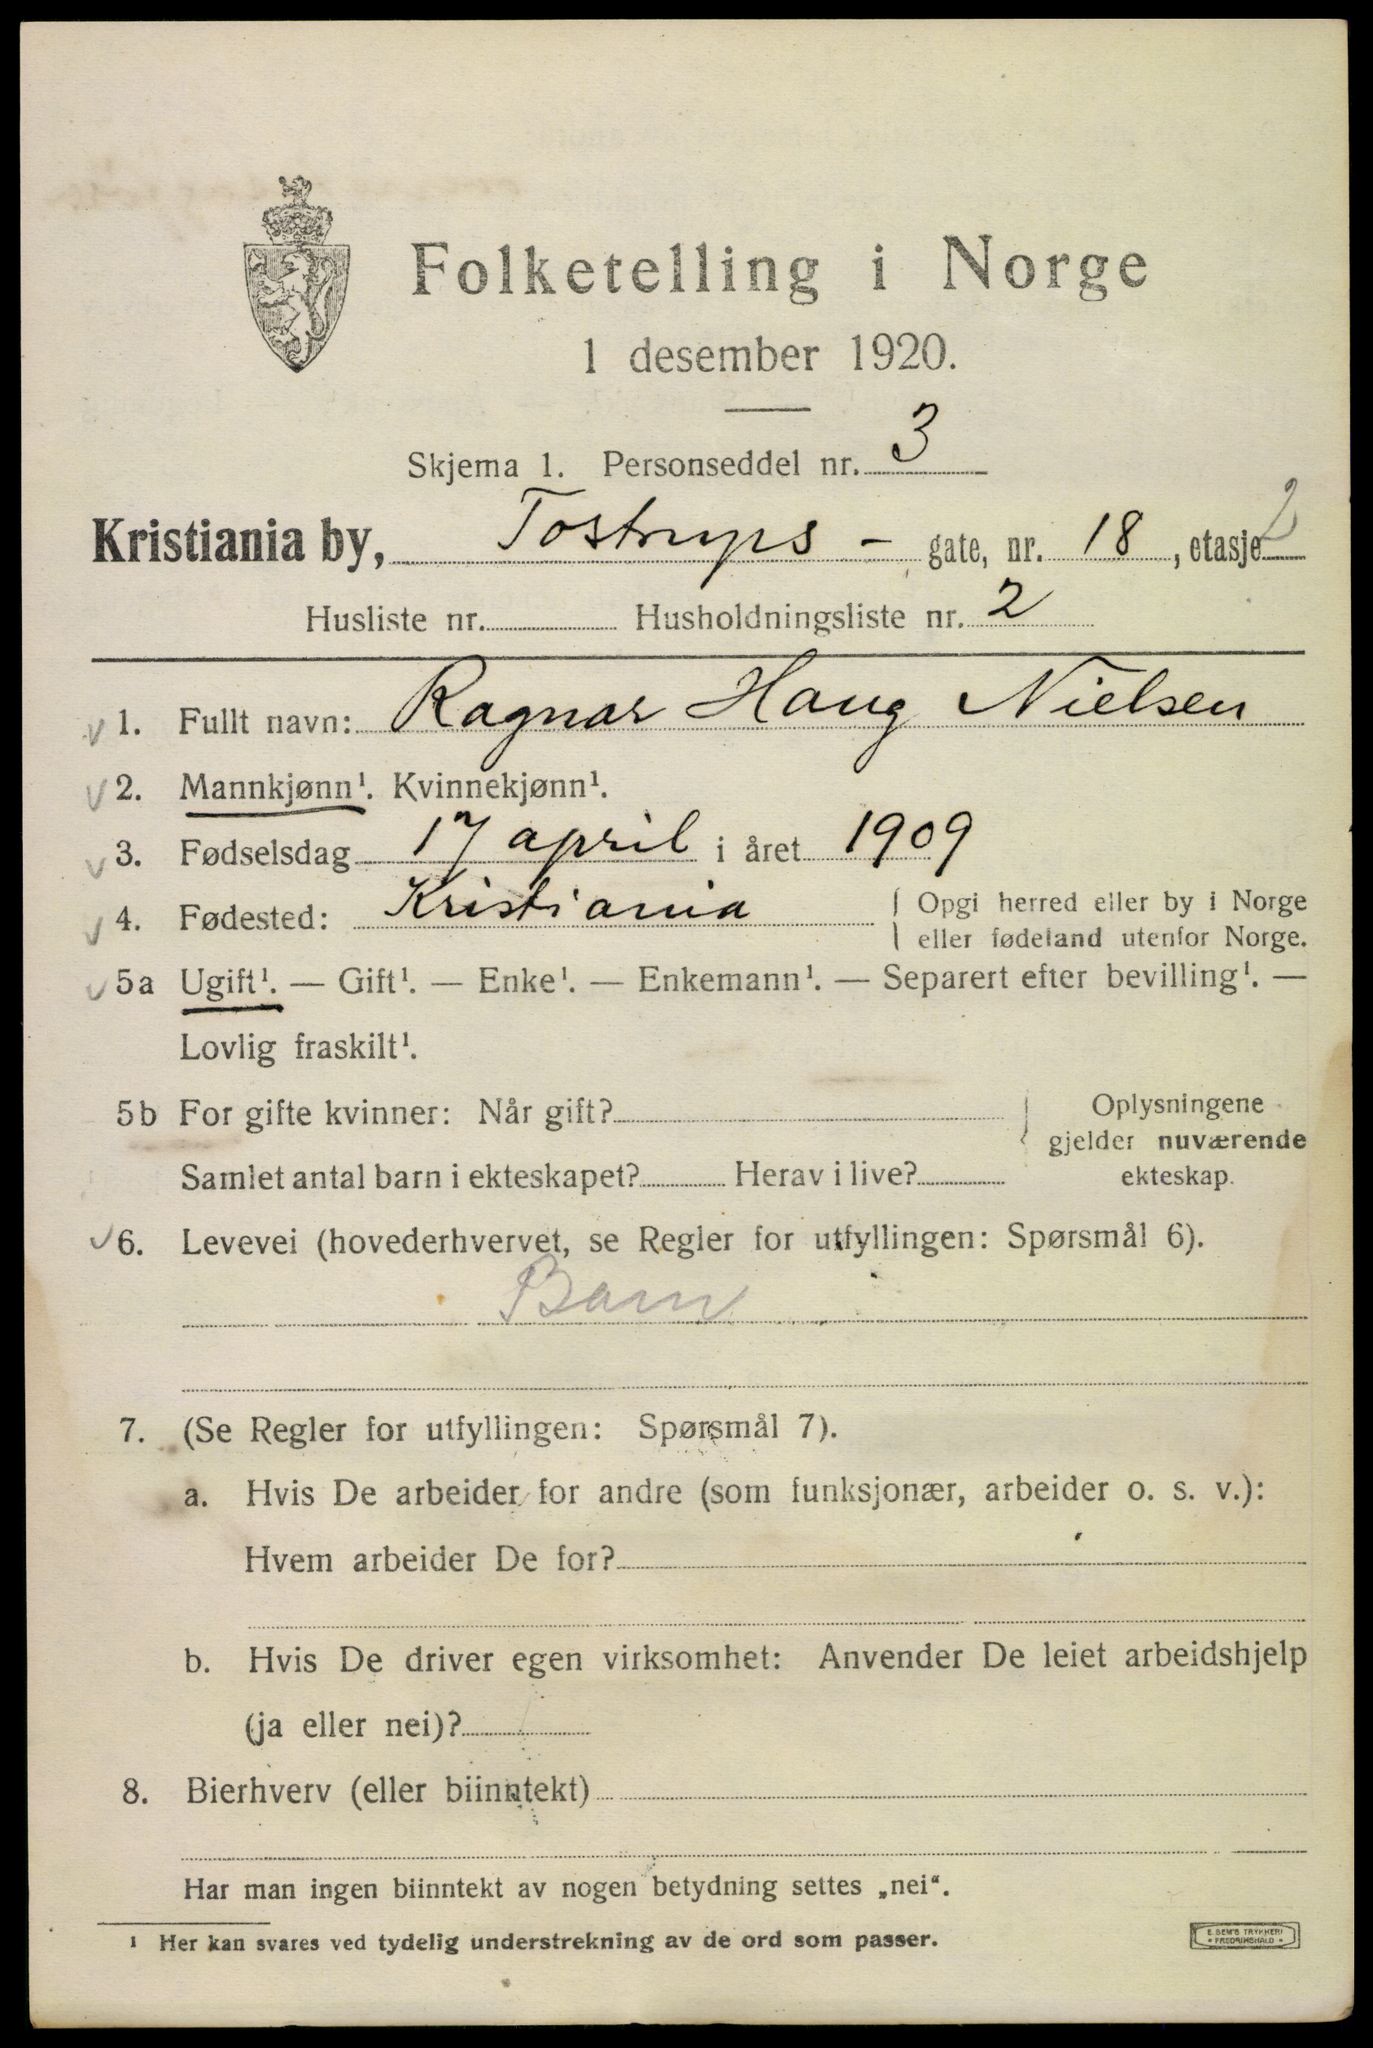 Folketelling i Norge
1 desember 1920.
Skjema 1. Personseddel nr. 3
Kristiania by, Tostrups - gate, nr. 18, etasje 2
Husliste nr. Husholdningsliste nr. 2
1. Fullt navn: Ragnar Haug Nielsen
2. Mannkjønn¹. Kvinnekjønn¹.
3. Fødselsdag 17 april i året 1909
4. Fødested: Kristiania { Opgi herred eller by i Norge
eller fødeland utenfor Norge.
5a Ugift¹. — Gift¹. — Enke¹. — Enkemann¹. — Separert efter bevilling¹. —
Lovlig fraskilt¹.
5b For gifte kvinner: Når gift? Oplysningene
gjelder nuværende
Samlet antal barn i ekteskapet? Herav i live? ekteskap.
6. Levevei (hovederhvervet, se Regler for utfyllingen: Spørsmål 6).
Barn
7. (Se Regler for utfyllingen: Spørsmål 7).
a. Hvis De arbeider for andre (som funksjonær, arbeider o. s. v.):
Hvem arbeider De for?
b. Hvis De driver egen virksomhet: Anvender De leiet arbeidshjelp
(ja eller nei)?
8. Bierhverv (eller biinntekt)
Har man ingen biinntekt av nogen betydning settes „nei“.
¹ Her kan svares ved tydelig understrekning av de ord som passer.
E. SEM'S TRYKKERI
• FREDRIKSHALD •